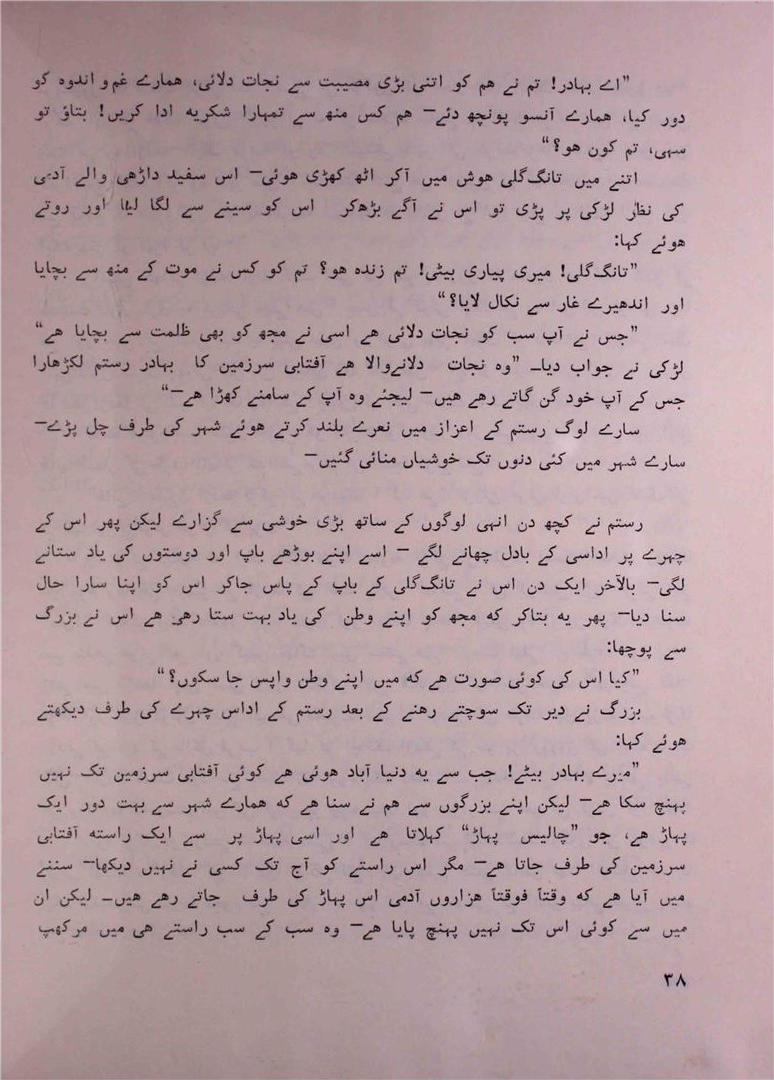 ”اے بہادر! تم نے ہم کو اتنی بڑی مصیبت سے نجات دلائی، ہمارے غم و اندوہ کو
دور کیا، ہمارے آنسو پونچھ دئے— ہم کس منھ سے تمہارا شکریہ ادا کریں! بتاؤ تو
سہی، تم کون ہو؟“
اتنے میں تانگ گلی ہوش میں آکر اٹھ کھڑی ہوئی— اس سفید داڑھی والے آدمی
کی نظر لڑکی پر پڑی تو اس نے آگے بڑھ کر اس کو سینے سے لگا لیا اور روتے
ہوئے کہا:
”تانگ گلی! میری پیاری بیٹی! تم زندہ ہو؟ تم کو کس نے موت کے منھ سے بچایا
اور اندھیرے غار سے نکال لایا؟“
”جس نے آپ سب کو نجات دلائی ہے اسی نے مجھ کو بھی ظلمت سے بچایا ہے“
لڑکی نے جواب دیا— ”وہ نجات دلانے والا ہے آفتابی سرزمین کا بہادر رستم لکڑھارا
جس کے آپ خود گن گاتے رہے ہیں— لیجئے وہ آپ کے سامنے کھڑا ہے—“
سارے لوگ رستم کے اعزاز میں نعرے بلند کرتے ہوئے شہر کی طرف چل پڑے—
سارے شہر میں کئی دنوں تک خوشیاں منائی گئیں—
رستم نے کچھ دن انہی لوگوں کے ساتھ بڑی خوشی سے گزارے لیکن پھر اس کے
چہرے پر اداسی کے بادل چھانے لگے — اسے اپنے بوڑھے باپ اور دوستوں کی یاد ستانے
لگی— بالآخر ایک دن اس نے تانگ گلی کے باپ کے پاس جاکر اس کو اپنا سارا حال
سنا دیا— پھر یہ بتاکر کہ مجھ کو اپنے وطن کی یاد بہت ستا رہی ہے اس نے بزرگ
سے پوچھا:
”کیا اس کی کوئی صورت ہے کہ میں اپنے وطن واپس جا سکوں؟“
بزرگ نے دیر تک سوچتے رہنے کے بعد رستم کے اداس چہرے کی طرف دیکھتے
ہوئے کہا:
”میرے بہادر بیٹے! جب سے یہ دنیا آباد ہوئی ہے کوئی آفتابی سرزمین تک نہیں
پہنچ سکا ہے— لیکن اپنے بزرگوں سے ہم نے سنا ہے کہ ہمارے شہر سے بہت دور ایک
پہاڑ ہے، جو ”چالیس پہاڑ“ کہلاتا ہے اور اسی پہاڑ پر سے ایک راستہ آفتابی
سرزمین کی طرف جاتا ہے— مگر اس راستے کو آج تک کسی نے نہیں دیکھا— سننے
میں آیا ہے کہ وقتاً فوقتاً ہزاروں آدمی اس پہاڑ کی طرف جاتے رہے ہیں— لیکن ان
میں سے کوئی اس تک نہیں پہنچ پایا ہے— وہ سب کے سب راستے ہی میں مرکھپ
۳۸